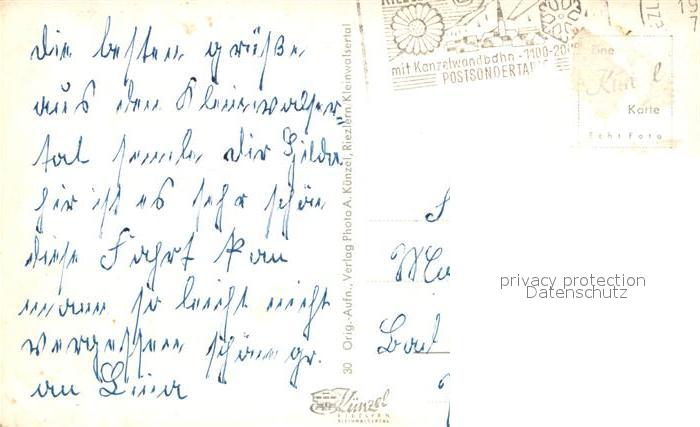 die besten grüße
aus den Kleinwalser=
tal sende dir Hilda
hir ist es sehr schön
diese Fahrt kan
mann so leicht nicht
vergessen schöne gr.
an Lina
30 Orig.-Aufn., Verlag Photo A. Künzel, Riezlern Kleinwalsertal
Künzel
RIEZLERN
KLEINWALSERTAL
mit Kanzelwandbahn - 1100-20
POSTSONDERTA
19
Eine
Künzel
Karte
Echt Foto
Bad
privacy protection
Datenschutz